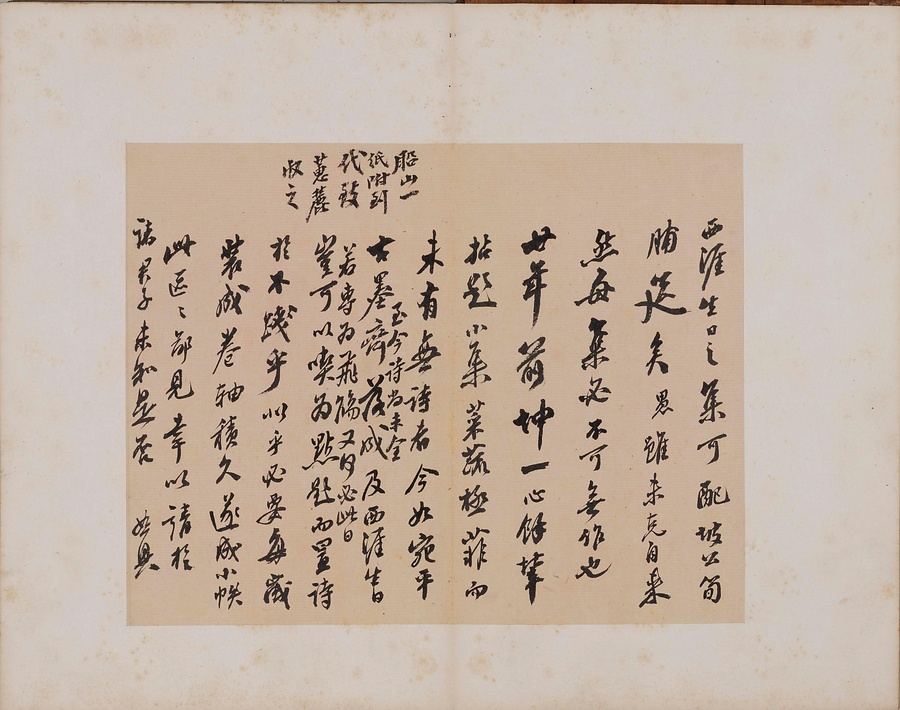 西涯生日之集可配坡公笱
脯筵矣愚雖未克自来
然每集必不可無作也
廿年前坤一心餘輩
拈題小集菜蔬極菲而
未有無詩者今如宛平
古墨齋落成及西涯生日
至今詩尚未全
若專為飛觴又何必此日
豈可以喫為點題而置詩
於不踐乎似乎必要每歲
裝成卷軸積久遂成小帙
此區々鄙見幸以請於
諸君子未知是否
船山一
紙附到
代致
蕙麓
收之